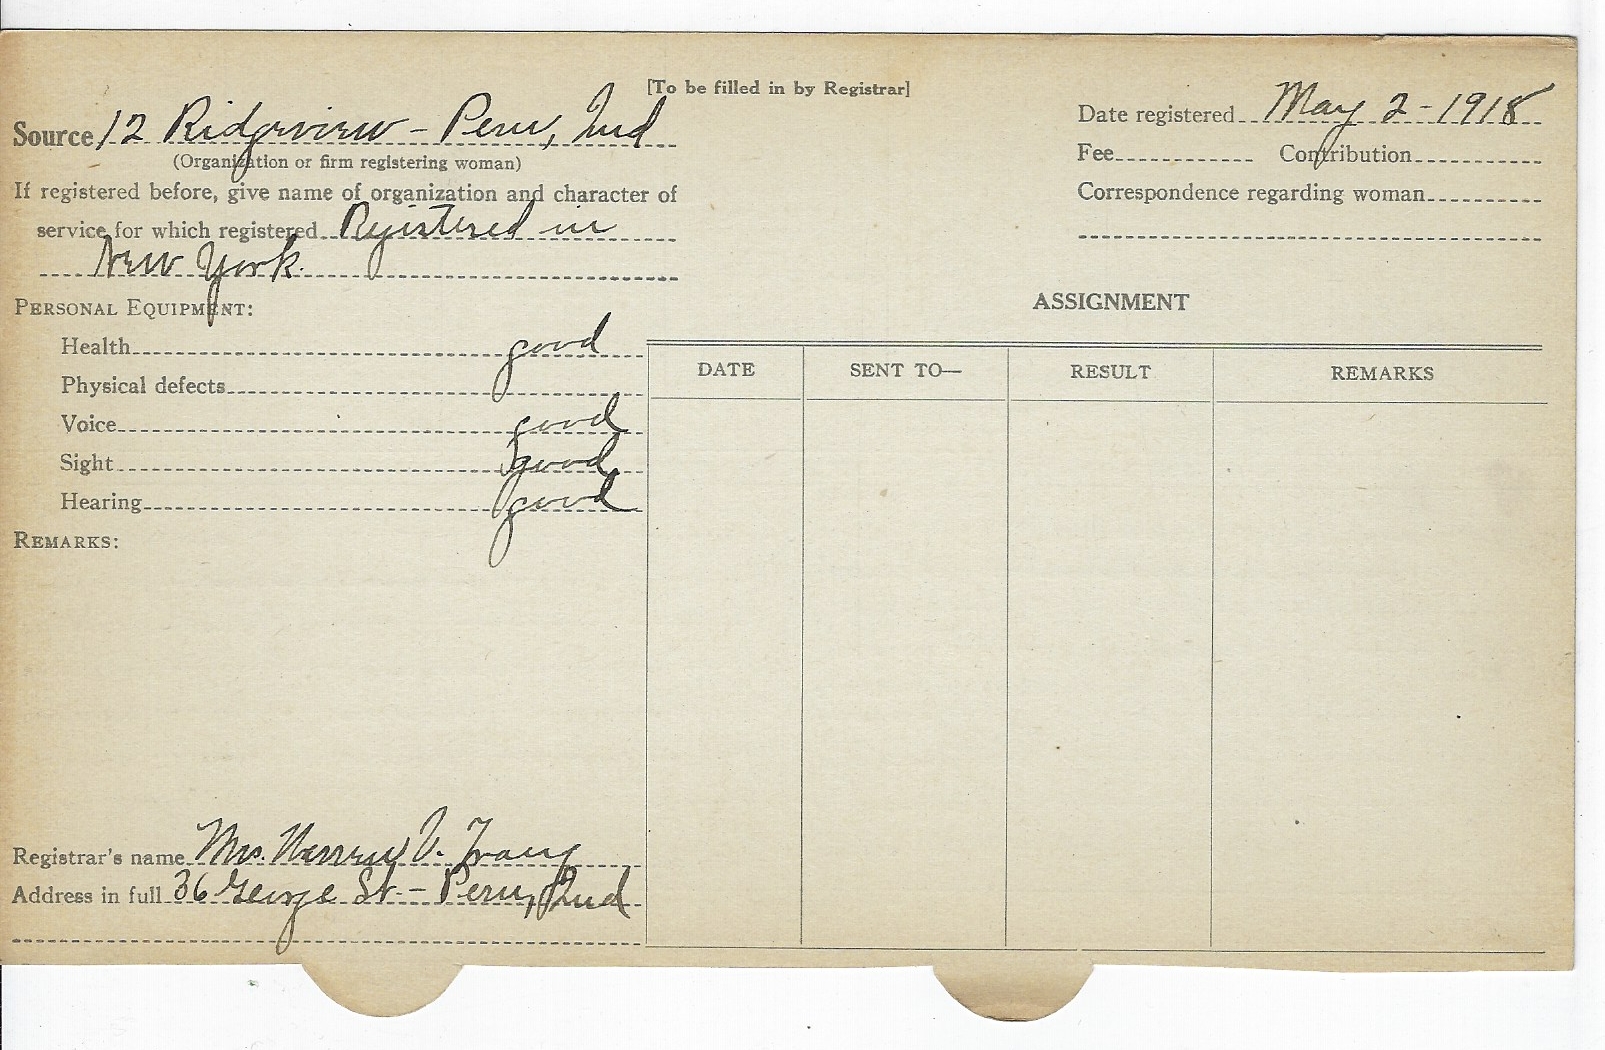 [To be filled in by Registrar]
Source 12 Ridgeview - Peru, Ind
(Organization or firm registering woman)
If registered before, give name of organization and character of
service for which registered Registered in
New York.
PERSONAL EQUIPMENT:
Health good
Physical defects
Voice good
Sight good
Hearing good
REMARKS:
Registrar's name Mrs. V. Tracy
Address in full 36 George St - Peru, Ind
Date registered May 2 - 1918
Fee Contribution
Correspondence regarding woman
ASSIGNMENT
DATE SENT TO— RESULT REMARKS